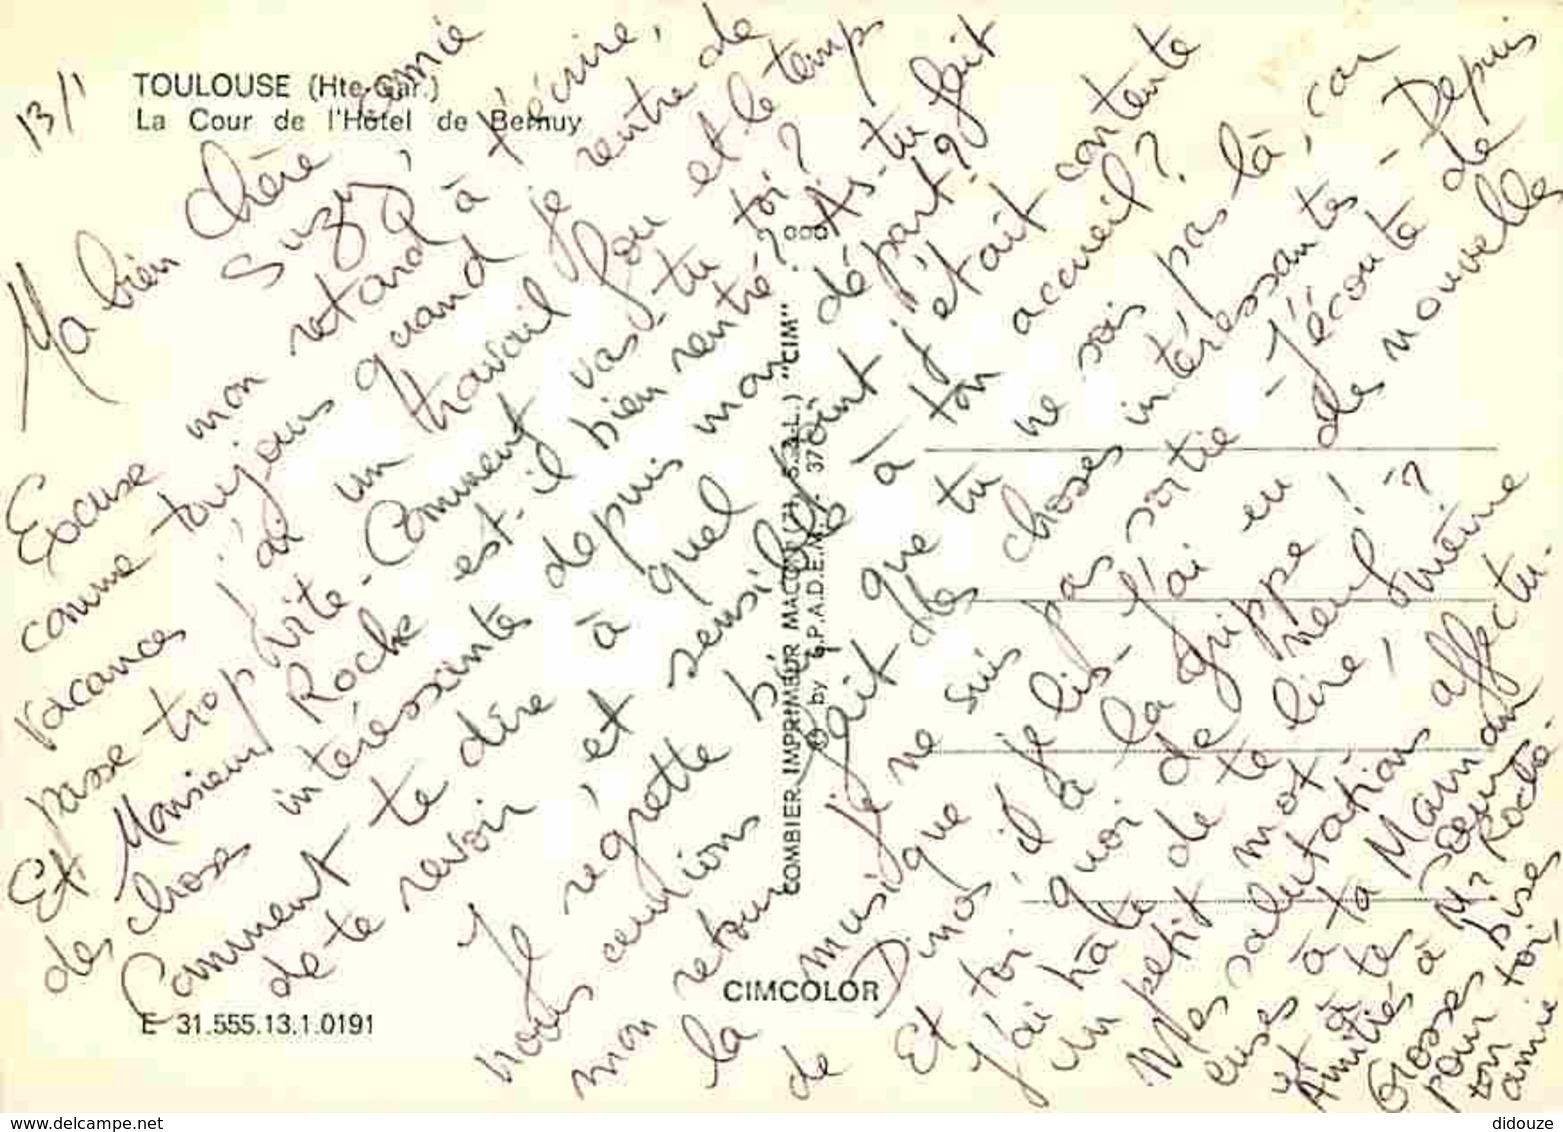 13/1
TOULOUSE (Hte-Gar.)
La Cour de l'Hôtel de Bernuy
Ma bien chère amie
Suzy,
Excuse mon retard à t'écrire,
comme toujours quand je rentre de
vacances j'ai un travail fou et le temps
passe trop vite - Comment vas-tu toi?
Et Monsieur Roche est-il bien rentré? As-tu fait
des choses intéressantes depuis mon départ?
Comment te dire à quel point j'étais contente
de te revoir, et sensible à ton accueil?
Je regrette que tu ne sois pas là, car
nous aurions fait des choses intéressantes - Depuis
mon retour je ne suis pas sortie - J'écoute de
la musique je lis - J'ai eu des nouvelles
de Dinos, il a la grippe!
Et toi quoi de neuf?
J'ai hâte de te lire, même
un petit mot
Mes salutations affectu-
euses à ta Maman
et à ta soeur
Amitiés à Mr Roche.
Grosses bises
pour toi,
ton amie
COMBIER IMPRIMEUR MACON (71 S.-&-L.) "CIM"
by S.P.A.D.E.M. - 37
CIMCOLOR
E 31.555.13.1.0191
www.delcampe.net
didouze